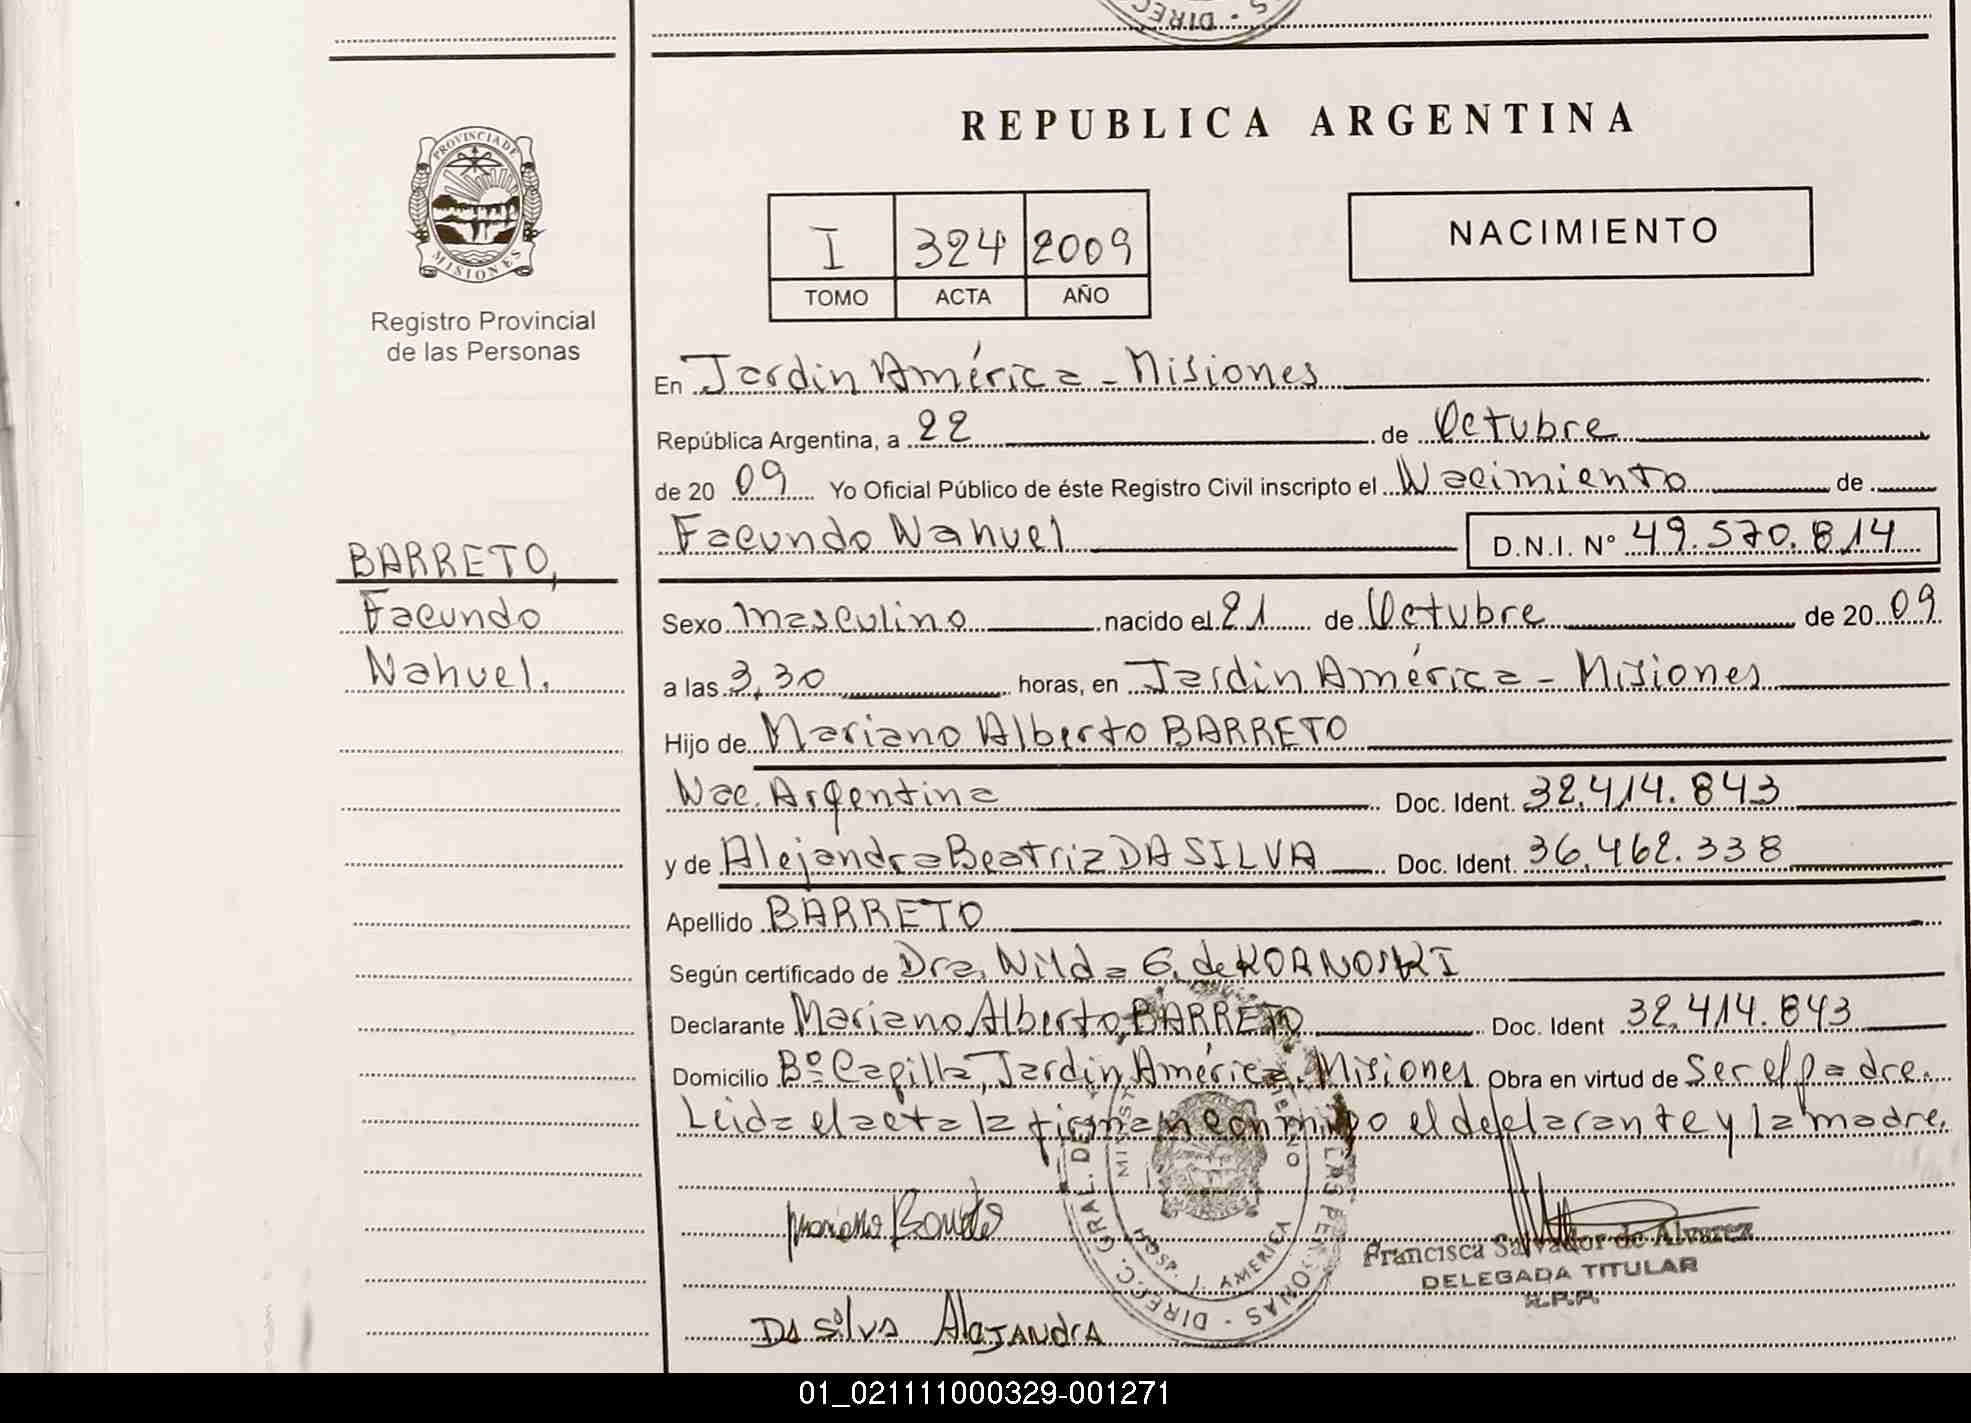 REPUBLICA ARGENTINA
PROVINCIA DE
MISIONES
Registro Provincial
de las Personas
I 324 2009
TOMO ACTA AÑO
NACIMIENTO
En Jardin América - Misiones
República Argentina, a 22 de Octubre
de 20 09 Yo Oficial Público de éste Registro Civil inscripto el Nacimiento de
Facundo Nahuel D.N.I. N° 49.570.814
BARRETO,
Facundo
Nahuel.
Sexo masculino nacido el 21 de Octubre de 20 09
a las 3,30 horas, en Jardin América - Misiones
Hijo de Mariano Alberto BARRETO
Nac. Argentina Doc. Ident. 32.414.843
y de Alejandra Beatriz DA SILVA Doc. Ident. 36.462.338
Apellido BARRETO
Según certificado de Dra. Nilda G. de KORNOSKI
Declarante Mariano Alberto BARRETO Doc. Ident 32.414.843
Domicilio Bº Capilla, Jardin América. Misiones Obra en virtud de Ser el padre.
Leida el acta la firman conmigo el declarante y la madre.
Mariano Barreto
Francisca Salvador de Alvarez
DELEGADA TITULAR
R.P.P.
Da silva Alejandra
DIREC. GRAL. DE LAS PERSONAS
HOSP. J. AMERICA
01_021111000329-001271